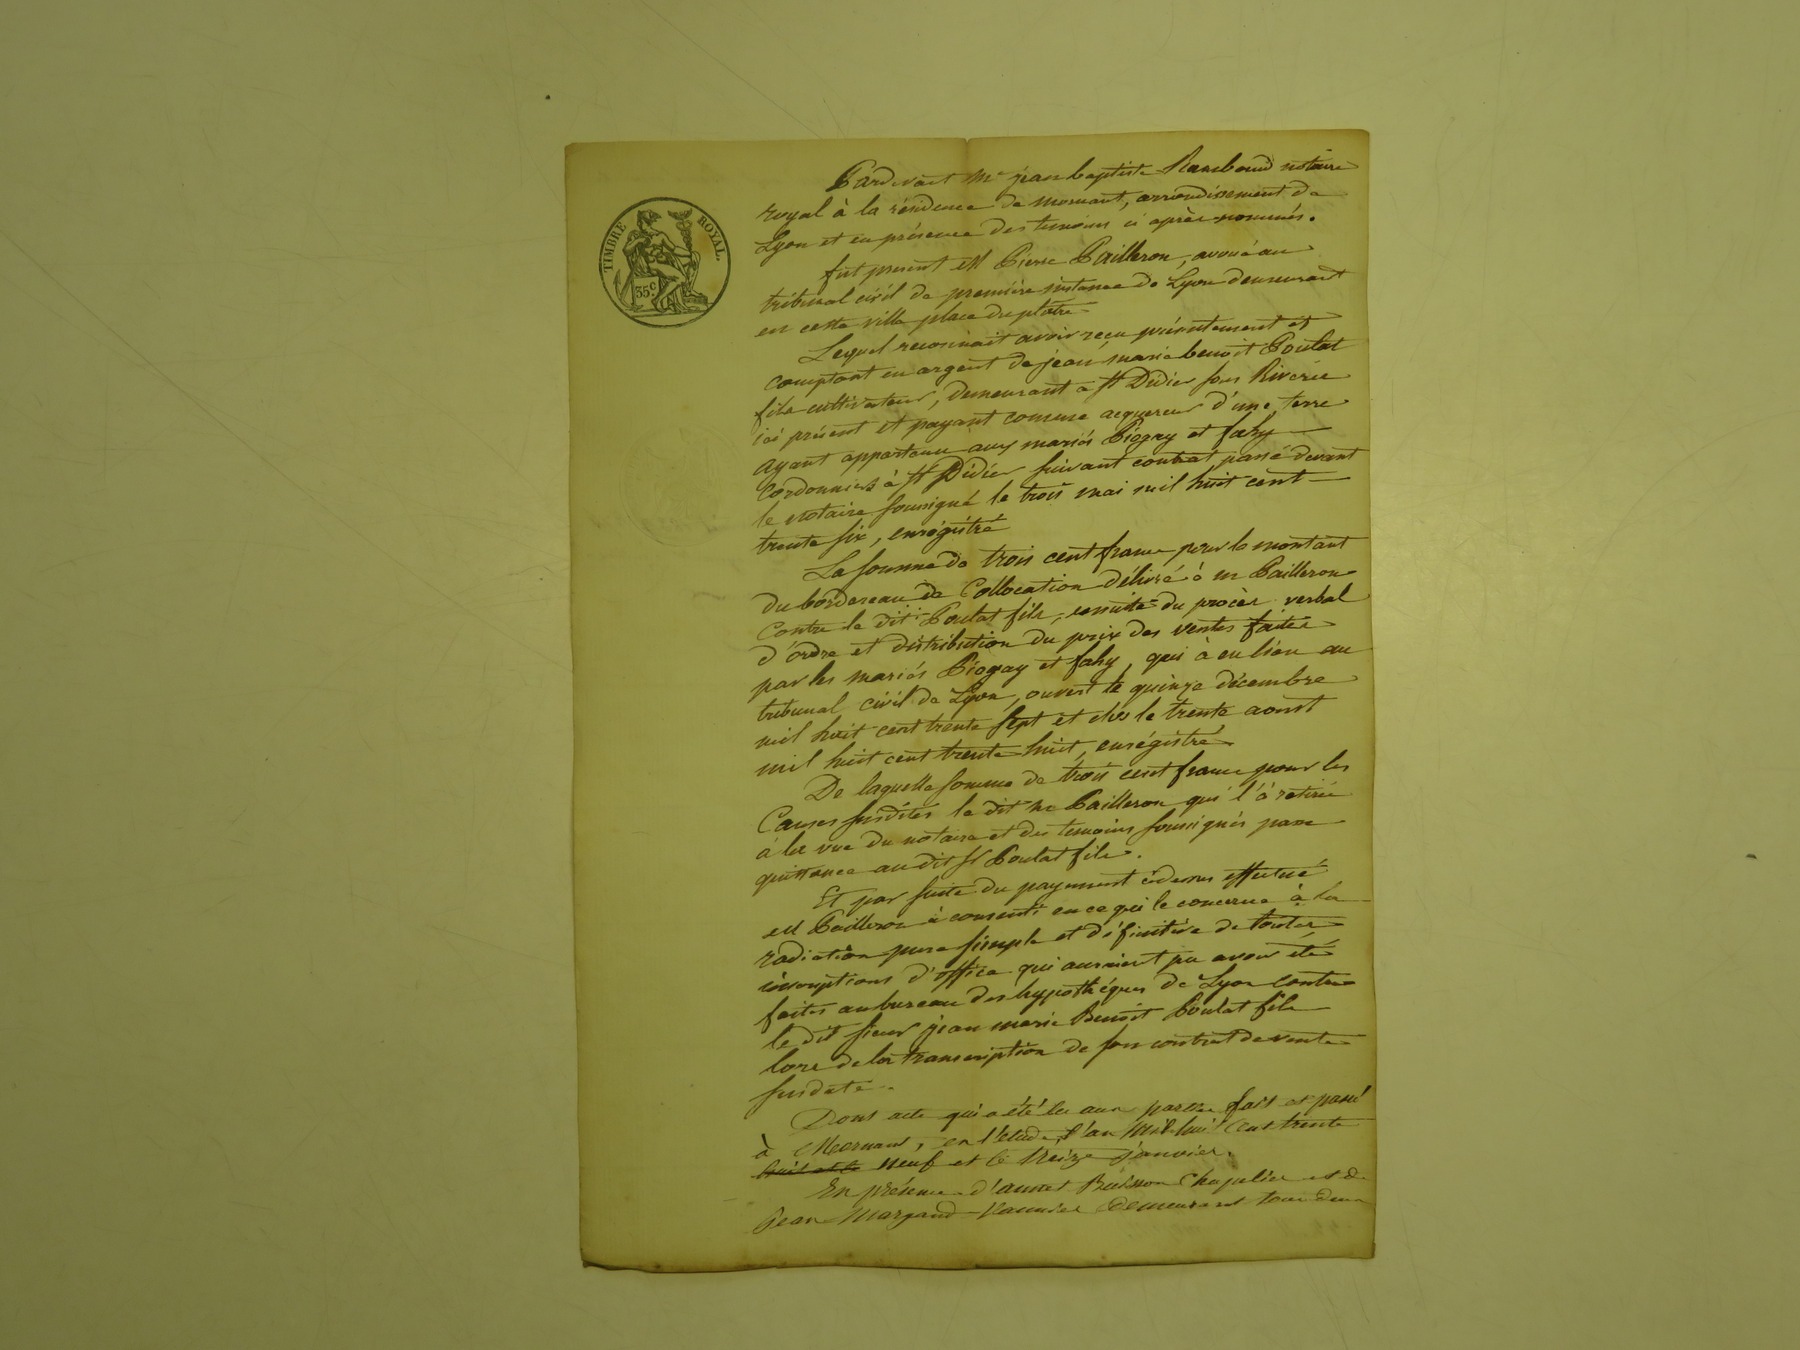 TIMBRE ROYAL.
35c.
Pardevant Me jean baptiste Rambaud notaire
royal à la résidence de mornant, arrondissement de
Lyon et en présence des temoins ci après nommés.
fut present M Pierre Pailleron, avoué au
tribunal civil de première instance de Lyon demeurant
en cette ville place du platre
Lequel reconnait avoir reçu présentement et
comptant en argent de jean marie benoit Poulat
fils cultivateur, demeurant a St Didier sous Riverie
ici présent et payant comme acquereur d'une terre
ayant appartenu aux mariés Piegay et faby
Cordonniers à St Didier suivant contrat passé devant
le notaire soussigné le trois mai mil huit cent
trente six, enrégistré
La somme de trois cent francs pour le montant
du bordereau de Collocation délivré à m Pailleron
contre le dit Poulat fils, ensuite du procès verbal
d'ordre et distribution du prix des ventes faites
par les mariés Piegay et faby, qui à eu lieu au
tribunal civil de Lyon, ouvert le quinze décembre
mil huit cent trente sept et clos le trente aoust
mil huit cent trente huit, enrégistré
De laquelle somme de trois cent francs pour les
Causes susdites le dit Me Pailleron qui l'à retirée
à la vue du notaire et des temoins soussignés passe
quittance au dit Sr Poulat fils.
Et par suite du payement cidessus effectué
M Pailleron à consenti en ce qui le concerne à la
radiation pure simple et définitive de toutes
inscriptions d'office qui auraient pu avoir été
faites au bureau des hypothéques de Lyon contre
le dit sieur jean marie Benoit Poulat fils
lors de la transcription de son contrat de vente
susdaté.
Dont acte qui a été lu aux parties fait et passé
à Mornant, en l'étude, l'an Mil huit Cent trente
huit et le neuf et le treize janvier.
En présence d'annet Buisson Chapelier et de
Jean Margand Vannier demeurant tous deux